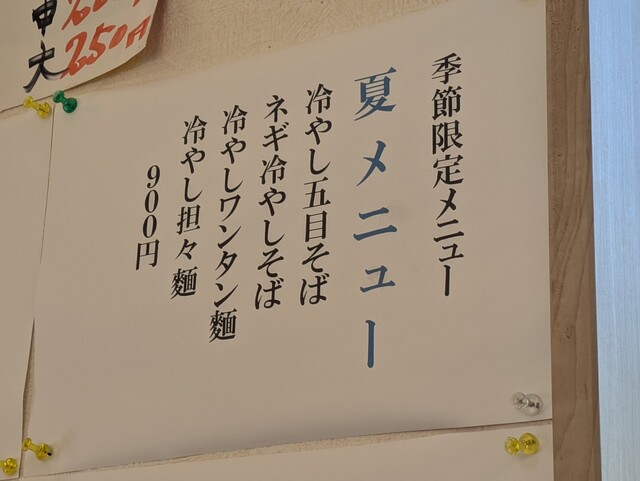 季節限定メニュー
夏メニュー
冷やし五目そば
ネギ冷やしそば
冷やしワンタン麵
冷やし担々麵
900円
大 250円